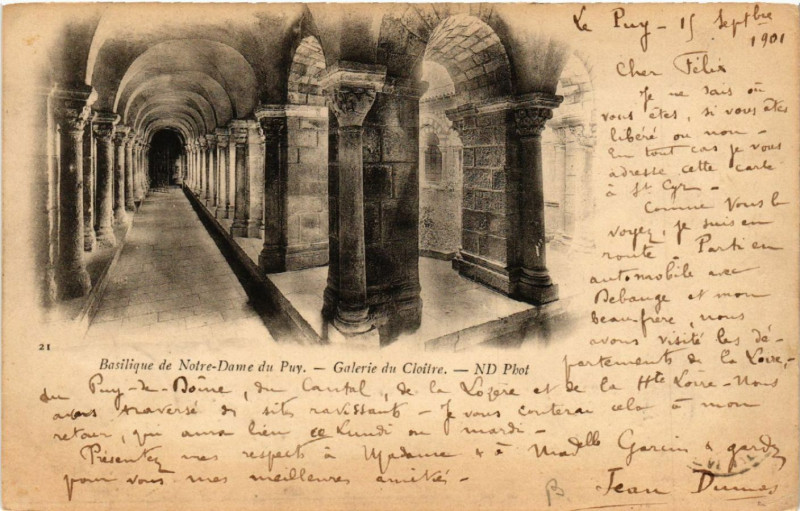 Le Puy - 15 Septbre
1901
Cher Félix
Je ne sais où
vous êtes, si vous êtes
libéré ou non -
En tout cas je vous
adresse cette carte
à St Cyr -
Comme vous le
voyez, je suis en
route. Parti en
automobile avec
Debauge et mon
beau frère, nous
avons visité les dé-
partements de la Loire,
du Puy-de-Dôme, du Cantal, de la Lozère et de la Hte Loire - Nous
avons traversé des sites ravissants - Je vous conterai cela à mon
retour, qui aura lieu ce Lundi ou mardi -
Présentez mes respects à Madame & à Madelle Garcin & gardez
pour vous mes meilleures amitiés -
Jean Dumas
21
Basilique de Notre-Dame du Puy. — Galerie du Cloître. — ND Phot